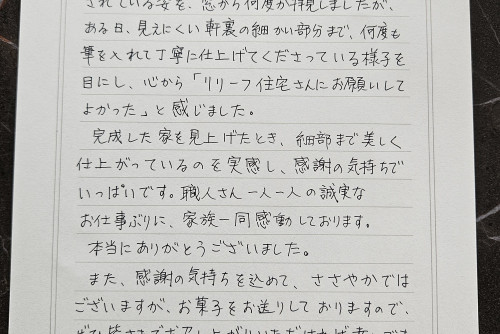 されている姿を、窓から何度か拝見しましたが、
ある日、見えにくい軒裏の細かい部分まで、何度も
筆を入れて丁寧に仕上げてくださっている様子を
目にし、心から「リリーフ住宅さんにお願いして
よかった」と感じました。
完成した家を見上げたとき、細部まで美しく
仕上がっているのを実感し、感謝の気持ちで
いっぱいです。職人さん一人一人の誠実な
お仕事ぶりに、家族一同感動しております。
本当にありがとうございました。
また、感謝の気持ちを込めて、ささやかでは
ございますが、お菓子をお送りしておりますので、